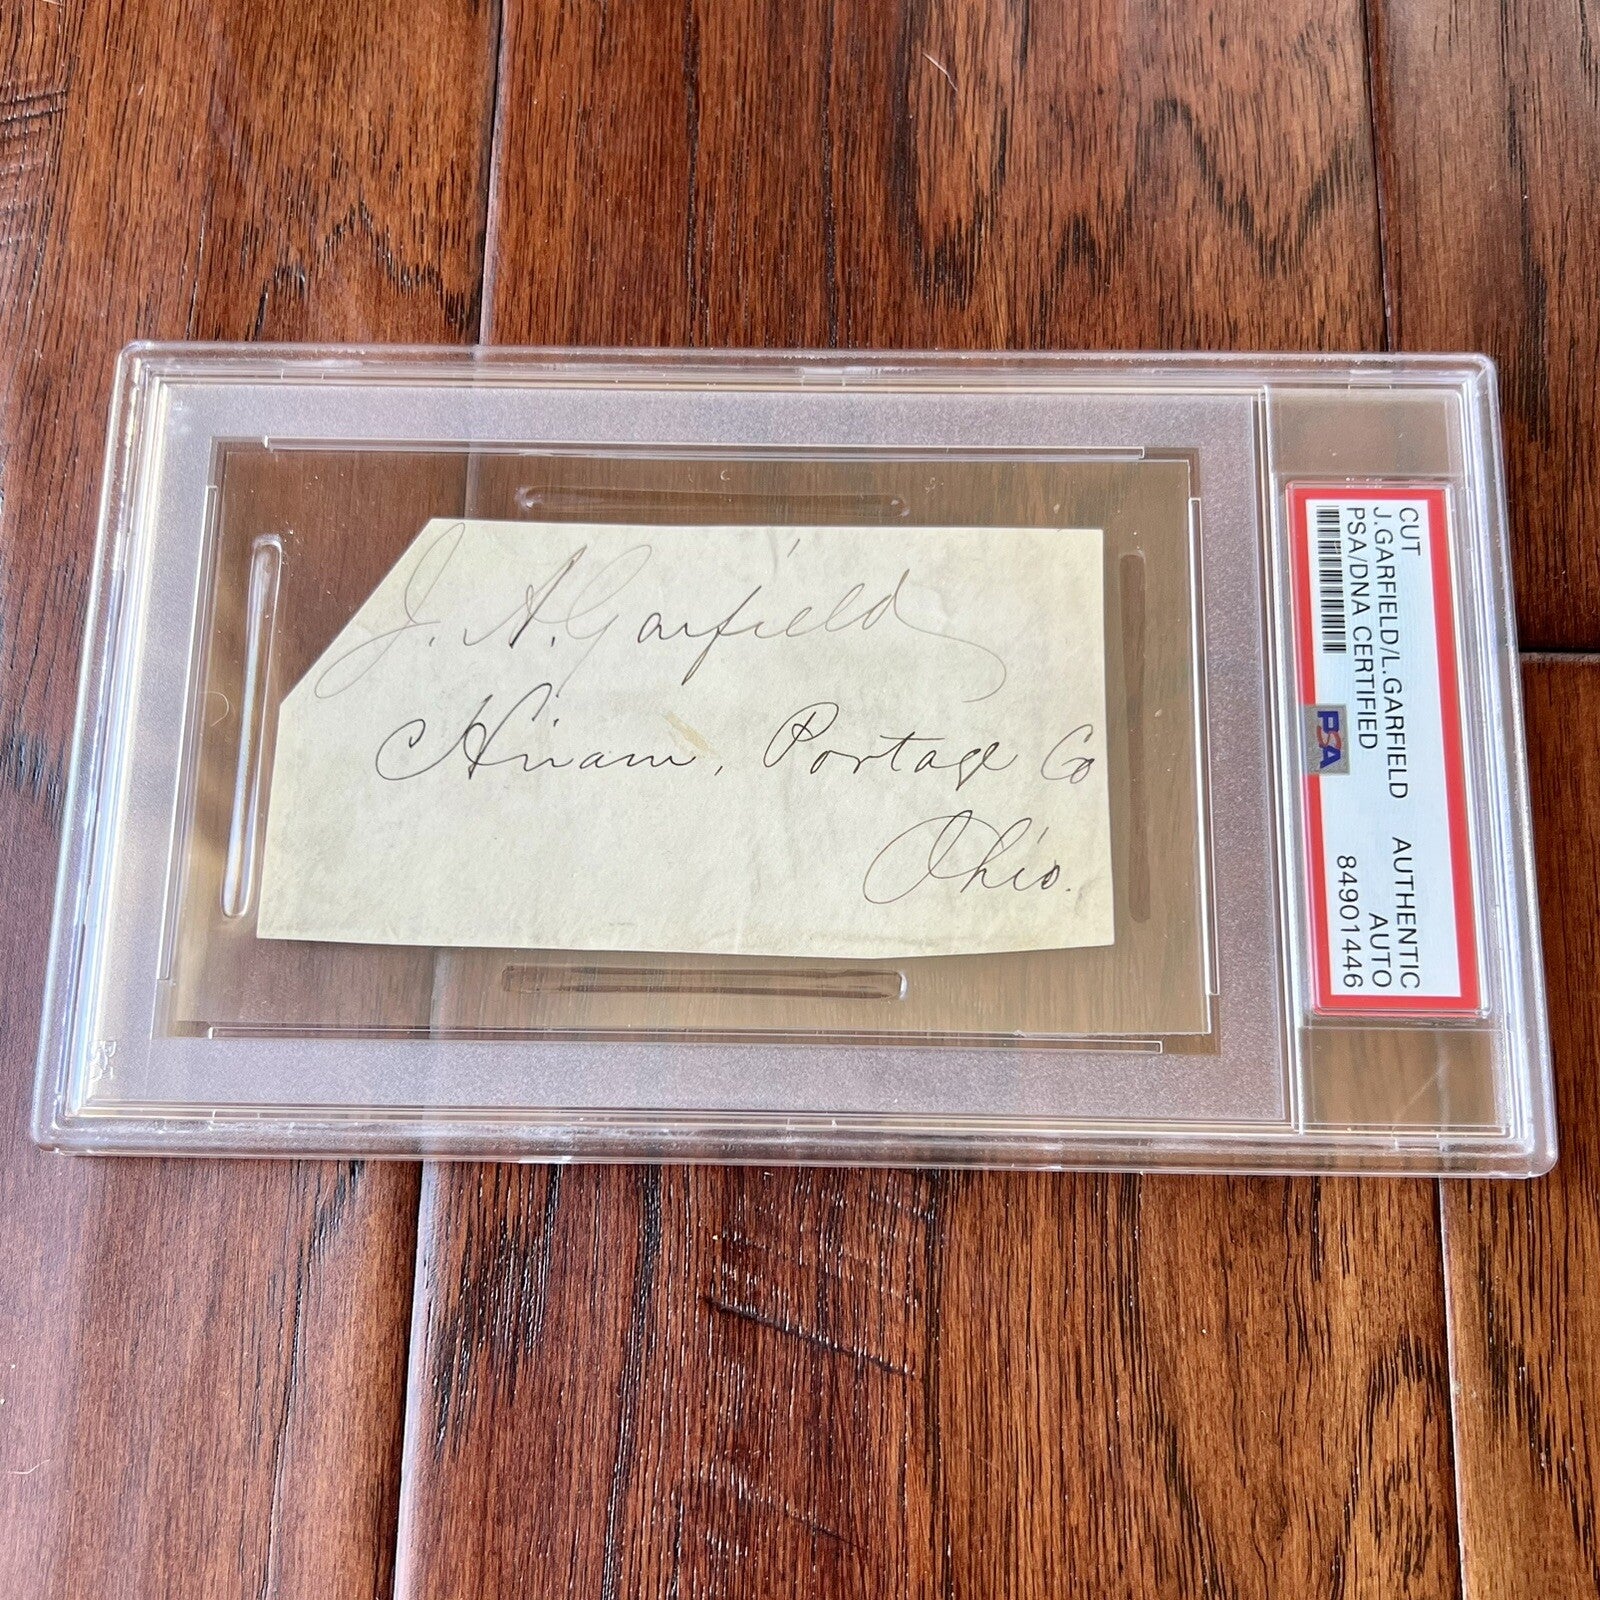 J. A. Garfield
Hiram, Portage Co
Ohio.
CUT
J.GARFIELD/L.GARFIELD
PSA/DNA CERTIFIED
AUTHENTIC
AUTO
84901446
PSA